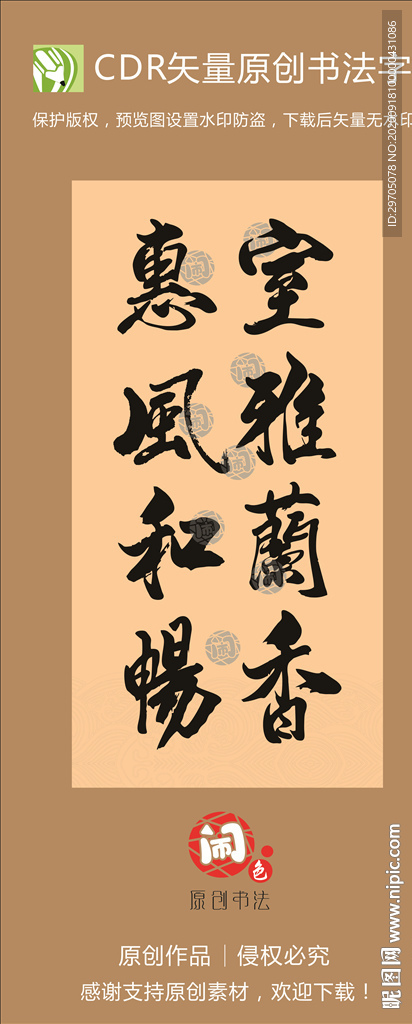 CDR矢量原创书法字
保护版权，预览图设置水印防盗，下载后矢量无水印
室雅蘭香
惠風和暢
闹
色
原创书法
原创作品｜侵权必究
感谢支持原创素材，欢迎下载！
昵图网 www.nipic.com